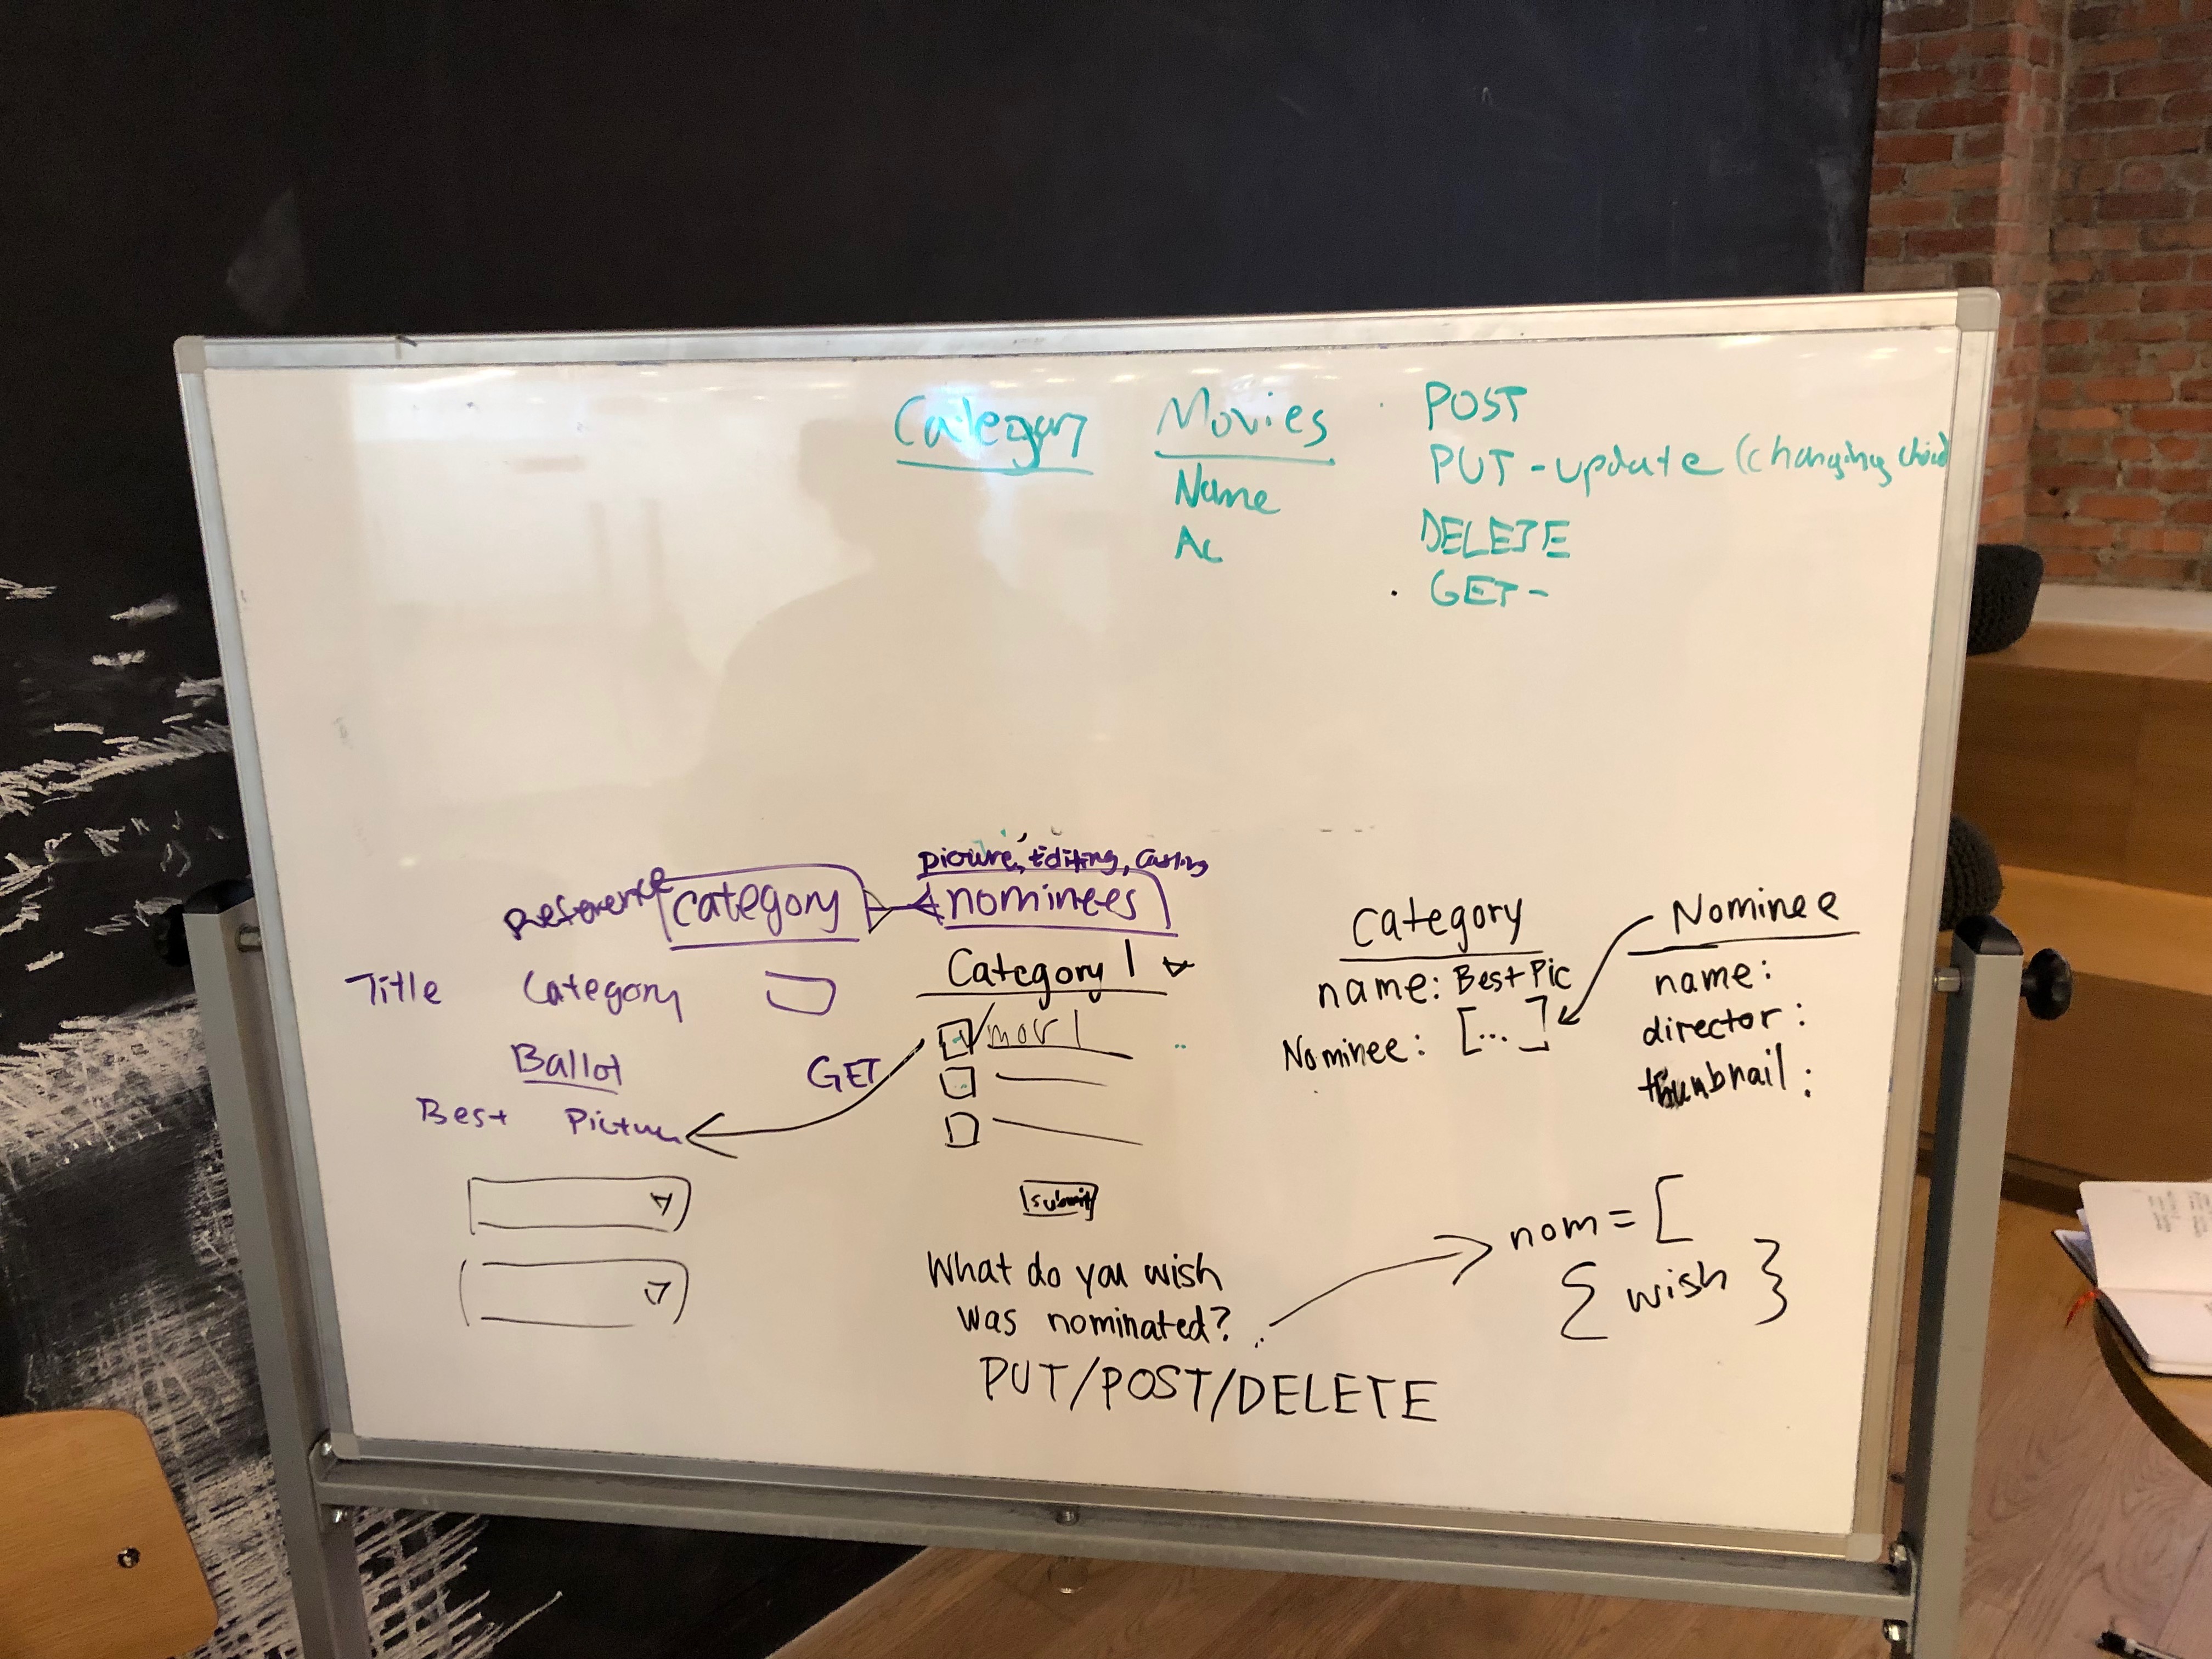 Category
Movies
Name
Ac
POST
PUT - update (changing choice)
DELETE
GET -
Reference
category
picture, Editing, Casting
nominees
Title Category
Ballot
Best Picture
GET
Category 1
mov 1
submit
What do you wish
was nominated?
PUT/POST/DELETE
Category
name: Best Pic
Nominee: [...]
Nominee
name:
director:
thumbnail:
nom = [
{ wish }